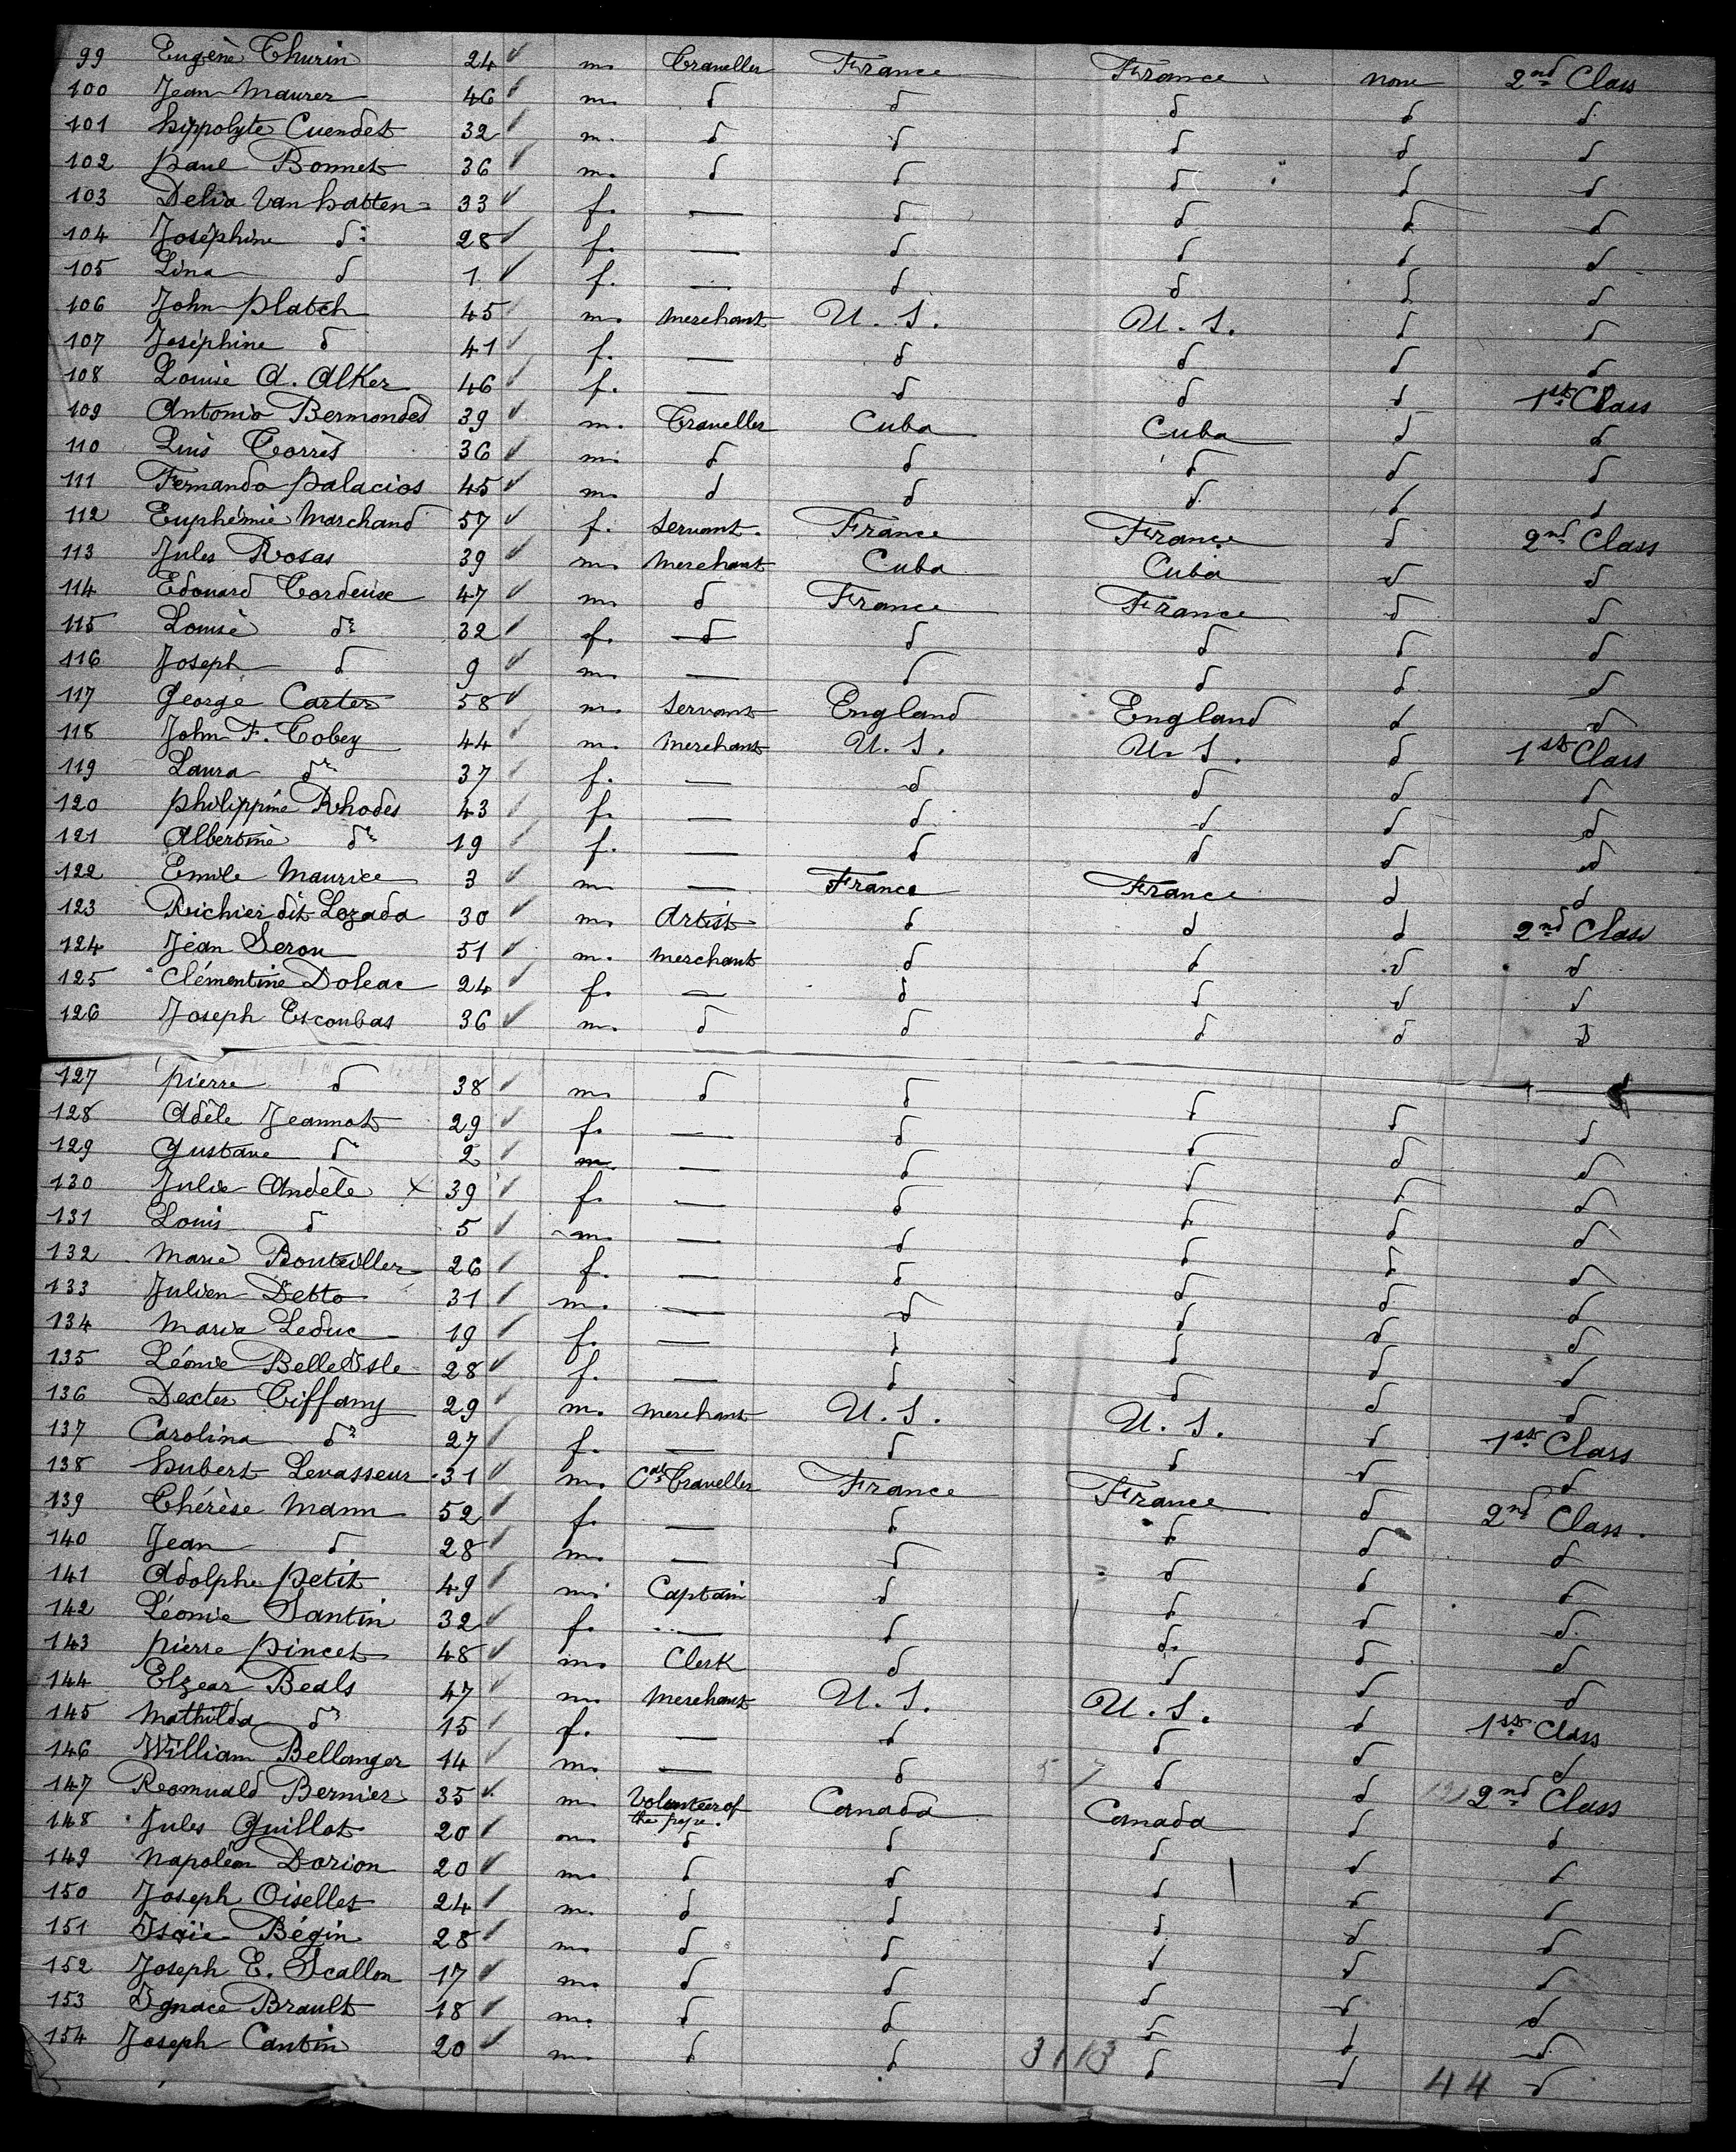 99 Eugène Thurin 24 m. Traveller France France none 2nd Class
100 Jean Maurer 46 m. d d d d d
101 Hippolyte Cuendet 32 m. d d d d d
102 Paul Bonnet 36 m. d d d d d
103 Delia Van hatten 33 f. — d d d d
104 Joséphine do 28 f. — d d d d
105 Lina d 1 f. — d d d d
106 John Platch 45 m. Merchant U. S. U. S. d d
107 Joséphine d 41 f. — d d d d
108 Louise A. Alker 46 f. — d d d 1st Class
109 Antonio Bermondes 39 m. Traveller Cuba Cuba d d
110 Luis Torrès 36 m. d d d d d
111 Fernando Palacios 45 m. d d d d d
112 Euphémie Marchand 57 f. Servant. France France d 2nd Class
113 Jules Rosas 39 m. Merchant Cuba Cuba d d
114 Edouard Cordeux 47 m. d France France d d
115 Louise do 32 f. d d d d d
116 Joseph d 9 m. — d d d d
117 George Carter 58 m. Servant England England d d
118 John F. Tobey 44 m. Merchant U. S. U. S. d 1st Class
119 Laura do 37 f. — d d d d
120 Philippine Rhodes 43 f. — d d d d
121 Albertine do 19 f. — d d d d
122 Emile Maurice 3 m. — France France d d
123 Richier dit Lozada 30 m. Artist d d d 2nd Class
124 Jean Seron 51 m. Merchant d d d d
125 Clémentine Doleac 24 f. — d d d d
126 Joseph Escoubas 36 m. d d d d d
127 Pierre d 38 m. d d d d d
128 Adèle Jeannot 29 f. — d d d d
129 Gustave d 2 m. — d d d d
130 Julie Andèle x 39 f. — d d d d
131 Louis d 5 m. — d d d d
132 Marie Bouteiller 26 f. — d d d d
133 Julien Detto 31 m. — d d d d
134 Maria Leduc 19 f. — d d d d
135 Léonie Belle Isle 28 f. — d d d d
136 Dexter Tiffany 29 m. Merchant U. S. U. S. d 1st Class
137 Carolina do 27 f. — d d d d
138 Hubert Levasseur 31 m. Cal Traveller France France d 2nd Class.
139 Thérèse Mann 52 f. — d d d d
140 Jean d 28 m. — d d d d
141 Adolphe Petit 49 m. Captain d d d d
142 Léonie Santin 32 f. — d d d d
143 Pierre Pincet 48 m. Clerk d d d d
144 Elzear Beals 47 m. Merchant U. S. U. S. d 1st Class
145 Mathilda do 15 f. — d d d d
146 William Bellanger 14 m. — d d d 2nd Class
147 Romuald Bernier 35 m. Volunteer of the pope. Canada Canada d d
148 Jules Guillot 20 m. d d d d d
149 Napoléon Dorion 20 m. d d d d d
150 Joseph Oisellet 24 m. d d d d d
151 Isaïe Bégin 28 m. d d d d d
152 Joseph E. Scallon 17 m. d d d d d
153 Ignace Brault 18 m. d d d d d
154 Joseph Cantin 20 m. d d d d d
31 13 44